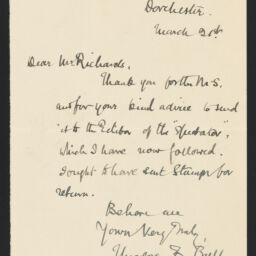 Dorchester.
March 20th
Dear Mr Richards,
Thank you for the M.S.
and for your kind advice to send
it to the Editor of the "Spectator",
which I have now followed.
I ought to have sent stamps for
return.
Believe me
Yours Very Truly,